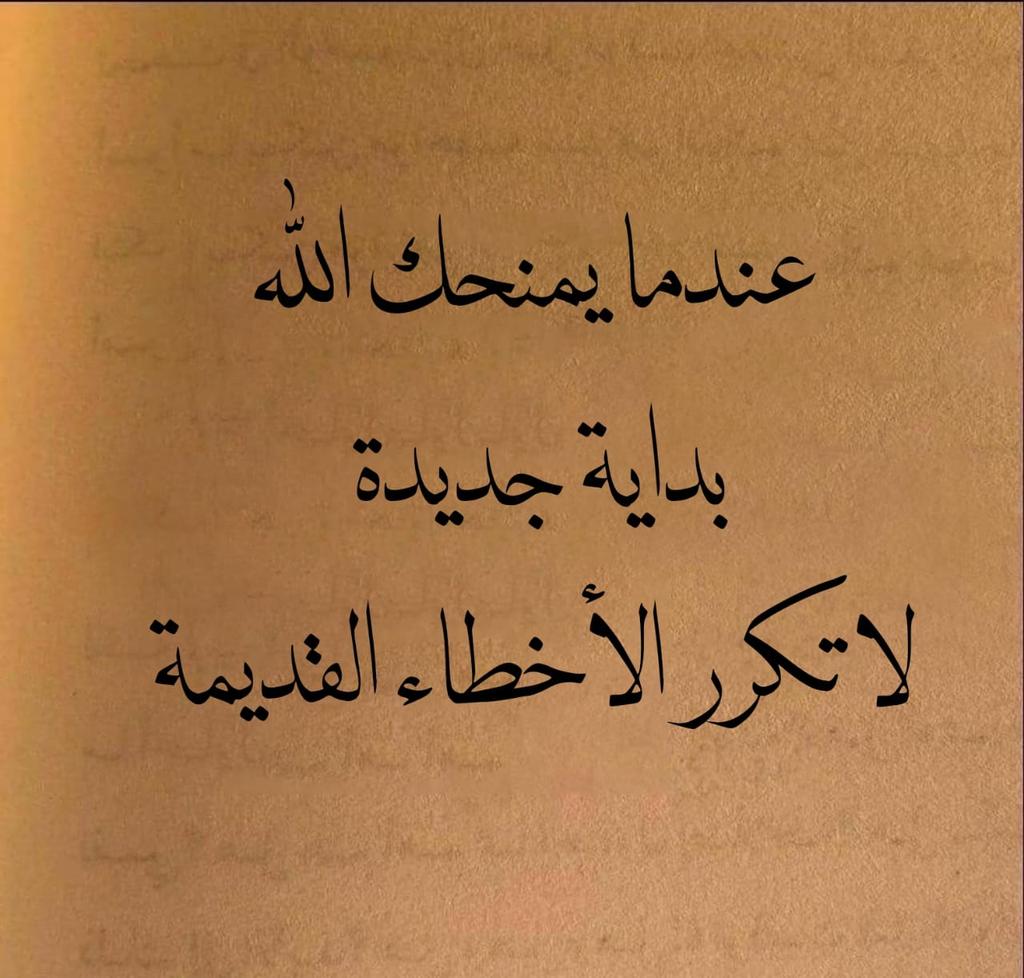 عندما يمنحك الله
بداية جديدة
لا تكرر الأخطاء القديمة